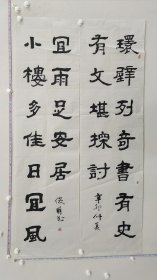 環壁列奇書有史
有文堪探討
辛卯仲夏
小樓多佳日宜風
宜雨足安居